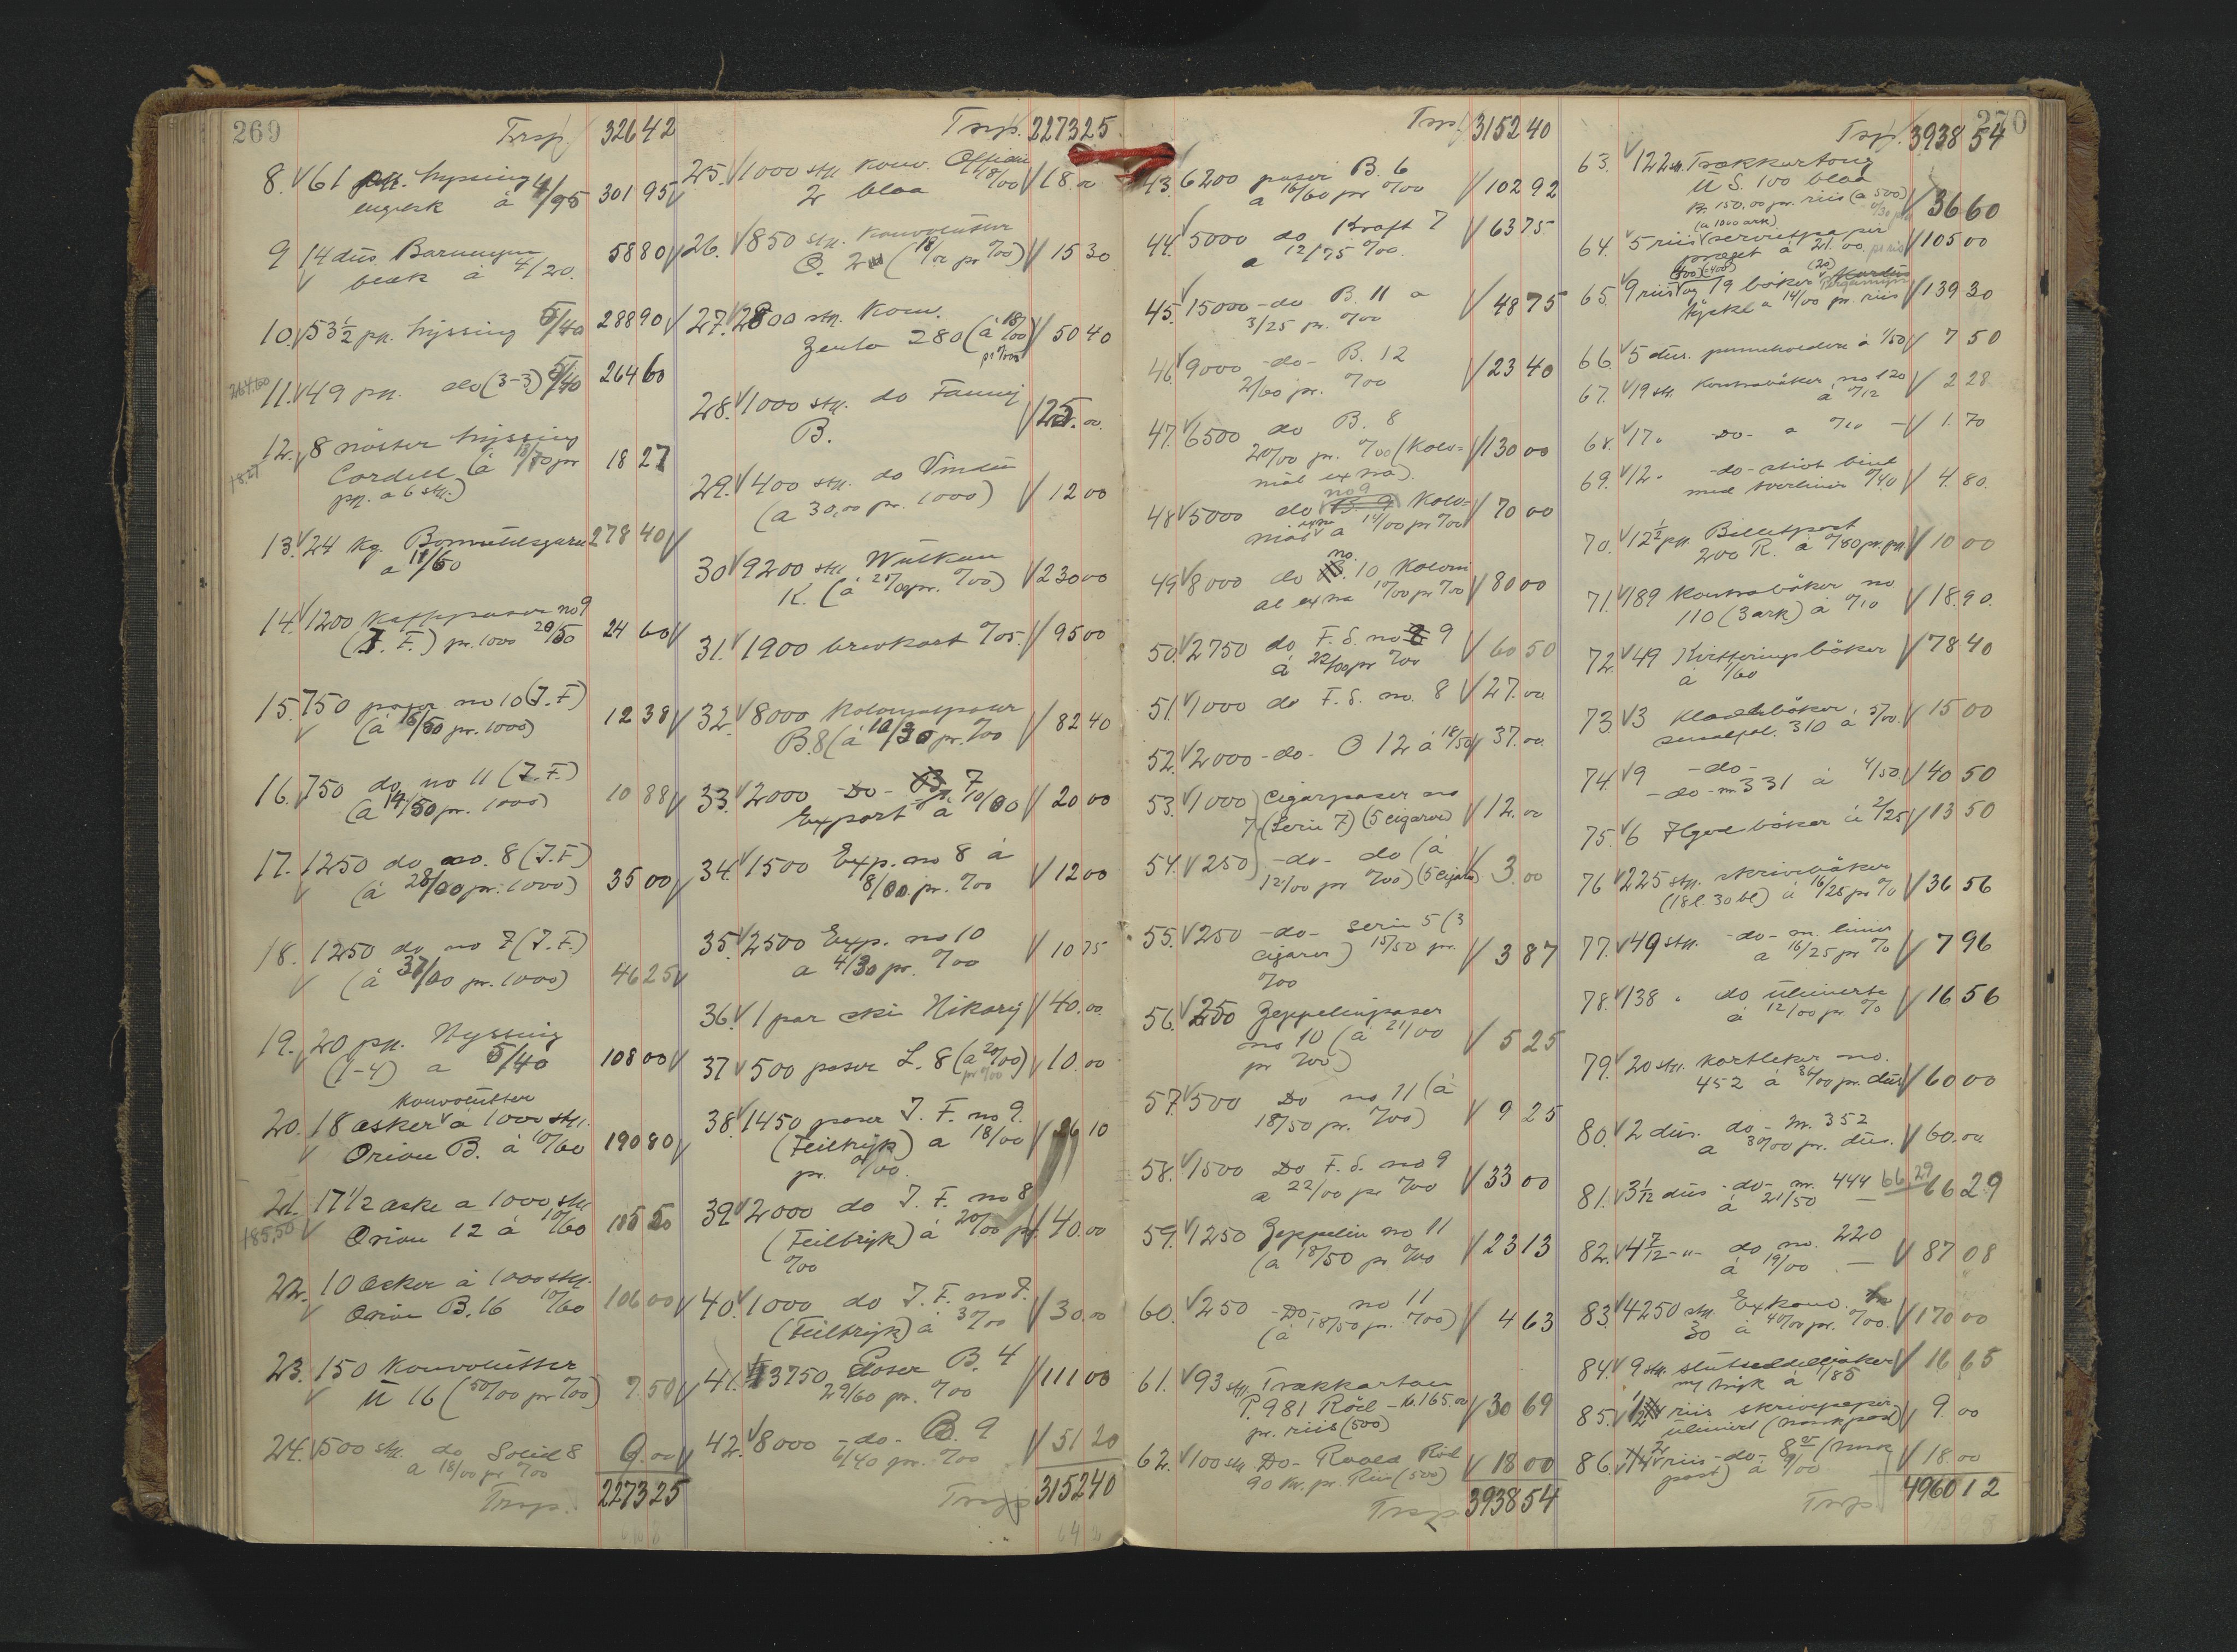 269
Trsp. 326 42
8. 61 pk. hyssing
engelsk à 4/95 301 95
9 14 dus. Barnunger
blek à 4/20. 58 80
10. 53 1/2 pk. hyssing 5/40 288 90
264.60
11. 49 pk. do (3-3) 5/40 264 60
12. 8 nöster hyssing
18.27
Cordell (à 13/70 pr
pk. a 6 stk.) 18 27
13. 24 kg. Bomuldsgarn 278 40
a 11/60
14. 1200 Kaffeposer no 9
(J. F.) pr. 1000 20/50 24 60
15. 750 poser no 10 (J. F.)
(à 16/50 pr. 1000) 12 38
16. 750 do no 11 (J. F.)
(à 14/50 pr. 1000) 10 88
17. 1250 do no. 8 (J. F.)
(à 28/00 pr. 1000) 35 00
18. 1250 do no 7 (J. F.)
(à 37/00 pr. 1000) 46 25
19. 20 pk. Hyssing
(1-4) a 5/40 108 00
Konvolutter
20. 18 æsker à 1000 stk.
Orion B. à 10/60 190 80
21. 17 1/2 æske a 1000 stk
185,50
Orion 12 à 10/60 185 50
22. 10 æsker à 1000 stk.
Orion B. 16 10/60 106 00
23. 150 Konvolutter
U 16 (50/00 pr. %00) 7.50
24. 500 stk. do Solid 8
a 18/00 pr %00 9.00
Trsp. 2273 25
Trsp. 2273 25
25. 1000 stk konv. Officiu
2 blaa 18/%00 18.00
26. 850 stk. Konvolutter
O. 2 (18/00 pr %00) 15 30
27. 2800 stk. Konv.
Zenta 280 (à 18/00
pr %00) 50 40
28. 1000 stk. do Fanny
B. 25.00
29. 400 stk. do Vindu
(a 30,00 pr. 1000) 12 00
30 9200 stk Vulkan
K. (à 25/00 pr. %00) 230 00
31. 1900 brevkort %05. 95 00
32. 8000 Kolonialposer
B. 8 (à 10/30 pr. %00 82 40
33. 2000 - Do - 7
Export à 10/00 20 00
34. 1500 Exp. no 8 à
8/00 pr. %00 12 00
35. 2500 Exp. no 10
a 4/30 pr. %00 10 75
36. 1 par ski Hikory 40.00
37 500 poser L. 8 (a 20/00)
pr %00 10.00
38. 1450 poser J. F. no 9
(Feiltryk) a 18/00
pr. %00. 26 10
39. 2000 do J. F. no 8
(Feiltryk) à 20/00 pr.
%00 40.00
40. 1000 do J. F. no 7.
(Feiltryk) à 30/00 30.00
41. 3750 Poser B. 4
29/60 pr. %00 111 00
42. 8000 - do - B. 9
6/40 pr. %00 51 20
Trsp 3152 40
Trsp. 3152 40
43. 6200 poser B. 6
a 16/60 pr %00 102 92
44. 5000 do Kraft 7
a 12/75 %00 63 75
45. 15000 - do B. 11 a
3/25 pr. %00 48 75
46. 9000 - do - B. 12
2/60 pr. %00 23 40
47. 6500 do B. 8
20/00 pr. %00 (Kolo-
nial extra) 130 00
no 9
48 5000 do B. 9 Kolo-
nial extra a 14/00 pr %00 70 00
no.
49 8000 do B. 10 Koloni
al extra 10/00 pr %00 80 00
50. 2750 do F. S. no 8 9
à 22/00 pr %00 60 50
51. 1000 do F. S. no. 8 27.00
52. 2000 - do - O 12 à 18/50 37.00
53. 1000 Cigarposer no
7 (Serie 7) (5 cigarer) 12.00
54. 250 - do - do (à
12/00 pr %00) (5 cigarer) 3.00
55. 250 - do - Serie 5 (3
cigarer) 15/50 pr.
%00 3 87
56. 250 Zeppelinposer
no 10 (à 21/00
pr %00) 5 25
57. 500 Do no 11 (à
18/50 pr. %00) 9 25
58. 1500 Do F. S. no 9
a 22/00 pr %00 33 00
59. 1250 Zeppelin no 11
(a 18/50 pr %00 23 13
60. 250 - Do - no 11
(à 18/50 pr. %00) 4 63
61. 93 stk. Trækkarton
P. 981 Röd - kr. 165.00
pr. riis (500) 30 69
62. 100 stk Do - Roald Röd
90 kr. pr. Riis (500) 18 00
Trsp. 3938 54
270
Trsp. 3938 54
63. 122 stk Trækkartong
U S. 100 blaa
kr. 150.00 pr. riis (a 500) 36 60
(a 1000 ark)
64. 5 riis serviettpapir
præget à 21.00 pr riis 105 00
(400) (400) (20)
65. 9 riis og 19 böker Pergamyn
tykke a 14/00 pr. riis 139 30
66. 5 dus. penneholdere à 1/50 7 50
67. 19 stk. Kontrabøker no 120
à %12 2 28
68. 17 " - Do - a %10 - 1.70
69. 12 " - do - stivt bind
med tverlinier %40 4.80
70. 12 1/2 pk. Billetpost
200 R. à %80 pr. pk 10 00
71. 189 Kontrabøker no
110 (3 ark) à %10 18.90.
72. 49 Kvitteringsbøker
à 1/60 78 40
73. 3 Kladdebøker
smalfol. 310 à 5/00 15 00
74. 9 - do -
- do - m. 331 à 4/50 40 50
75. 6 Hjvebøker à 2/25 13 50
76 225 stk. skrivebøker
(18 l. 30 bl) à 16/25 pr % 36 56
77. 49 stk. - do - m. linier
a 16/25 pr % 7 96
78. 138 " do ulinierte
à 12/00 pr. % 16 56
79. 20 stk. kortleker no.
452 à 36/00 pr. dus 60 00
80. 2 dus. do - m. 352
a 30/00 pr. dus. 60.00
81. 3 1/12 dus - do - nr. 444 66 29
à 21/50 66 29
82. 4 7/12 - " - do no. 220
à 19/00 - 87 08
83. 4250 stk. Ex.konv.
30 à 40/00 pr. %00. 170 00
84. 9 stk. slutseddelbøker
ny tryk à 1/85 16 65
85. 1/2 riis skrivepapir
ulinieret (bankpost) 9.00
86. 2 riis - do - (bank
post) à 9/00 18.00
Trsp. 4960 12